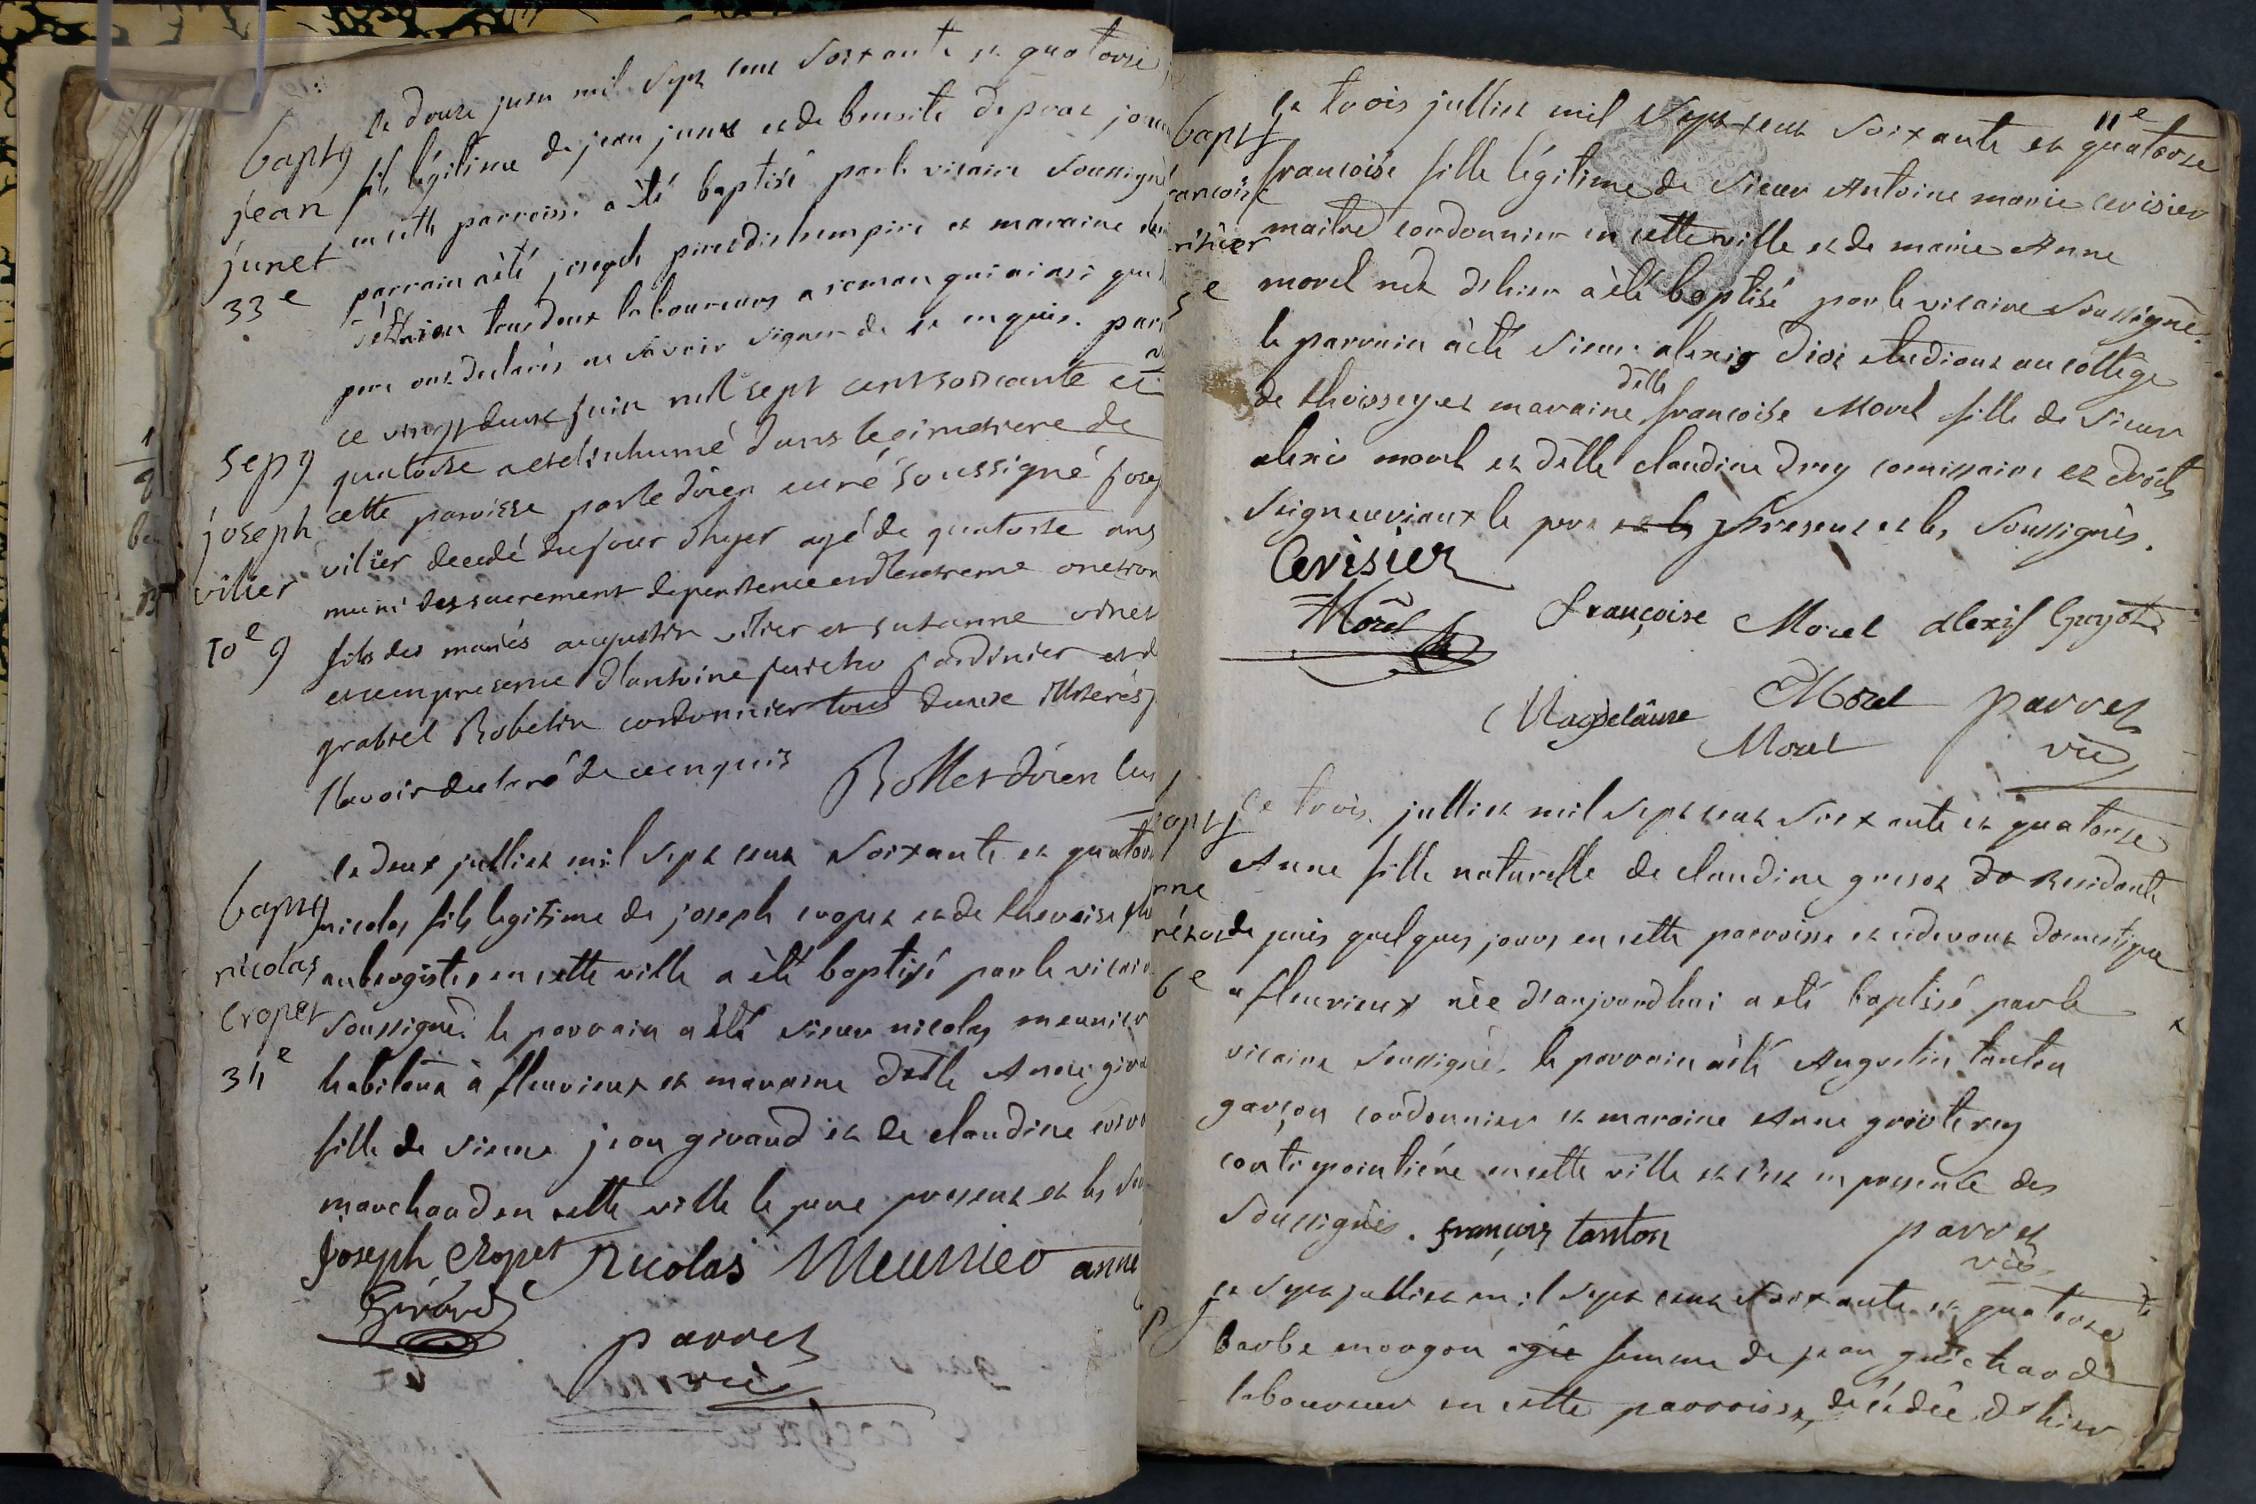 le douze juin mil sept cent soixante et quatorze
bapt
jean
junet
33e
fils légitime de jean junet et de benoite depras
en cette parroisse a été baptisé par le vicaire soussigné
parrain a été joseph piredis lempire et maraine
tous deux laboureurs a roman qui ainsi que
pere ont declarés ne savoir signer de ce enquis. par
ce vingt deux juin mil sept cent soissante et
sep
joseph
vilier
10e
quatorse a esté inhumé dans le cimetiere de
cette paroisse par le doien curé soussigné Josep
vilier decedé du jour d'hyer agé de quatorse ans
muni des sacrement de penitence et d'extreme onction
fils des mariés augustin vilier et susanne vinet
et ce en presence d'antoine jardinier et de
grabriel Robelin cordonnier tous deuxe illiterés
l'avoir declaré de ce enquis Rollet doien cur
le deux julliet mil sept cent soixante et quatorz
bapt
nicolas
cropet
34e
nicolas fils legitime de joseph cropet et de theraise
aubergiste en cette ville a été baptisé par le vicaire
soussigné le parrain a été sieur nicolas meunier
habitant à fleurieux et maraine delle Anne gira
fille de sieur jean giraud et de claudine
marchand en cette ville le pere present et les sou
joseph cropet Nicolas Meunier anne
Girard
parret
vic
11e
le trois julliet mil sept cent soixante et quatorse
bapt
francoise
risier
5e
francoise fille légitime de sieur Antoine marie cerisier
maitre cordonnier en cette ville et de marie Anne
morel née d'hier a été baptisé par le vicaire soussigné.
le parrain à été sieur alexis dioz etudiant au collége
de thoissey et maraine delle francoise Morel fille de sieur
alexis morel et delle claudine drey comissaire ez droits
seigneuriaux le pere et les present et les soussignés.
Cerisier
Morel françoise Morel alexis Guyot
Magdelaine Morel Morel parret
vic
le trois julliet mil sept cent soixante et quatorse
bapt
nne
6e
Anne fille naturelle de claudine gresot do residante
de puis quelques jours en cette parroisse et cidevant domestique
a fleurieux née d'aujourdhui a été baptisé par le
vicaire soussigné. le parrain a été Augustin tanton
garçon cordonnier et maraine Anne grioterey
contrepointiére en cette ville et c'est en presence des
soussignés. françois tanton parret
vic
le sept julliet mil sept cent soixante et quatorse
barbe morgon agée femme de jean guichard
laboureur en cette parroisse, décédée d'hier